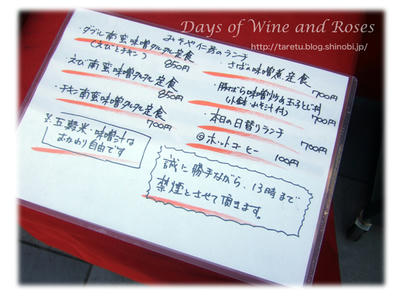 Days of Wine and Roses
http://taretu.blog.shinobi.jp/
のランチ
・ダブル南蛮味噌タルタル定食
(えびとチキン) 850円
・えび南蛮味噌タルタル定食
850円
・チキン南蛮味噌タルタル定食
700円
※五穀米・味噌汁は
おかわり自由です
・さばの味噌煮定食
700円
・豚ばら味噌炒め玉子とじ丼
700円
・本日の日替りランチ
700円
@ホットコーヒー
100円
誠に勝手ながら、13時まで
禁煙とさせて頂きます。